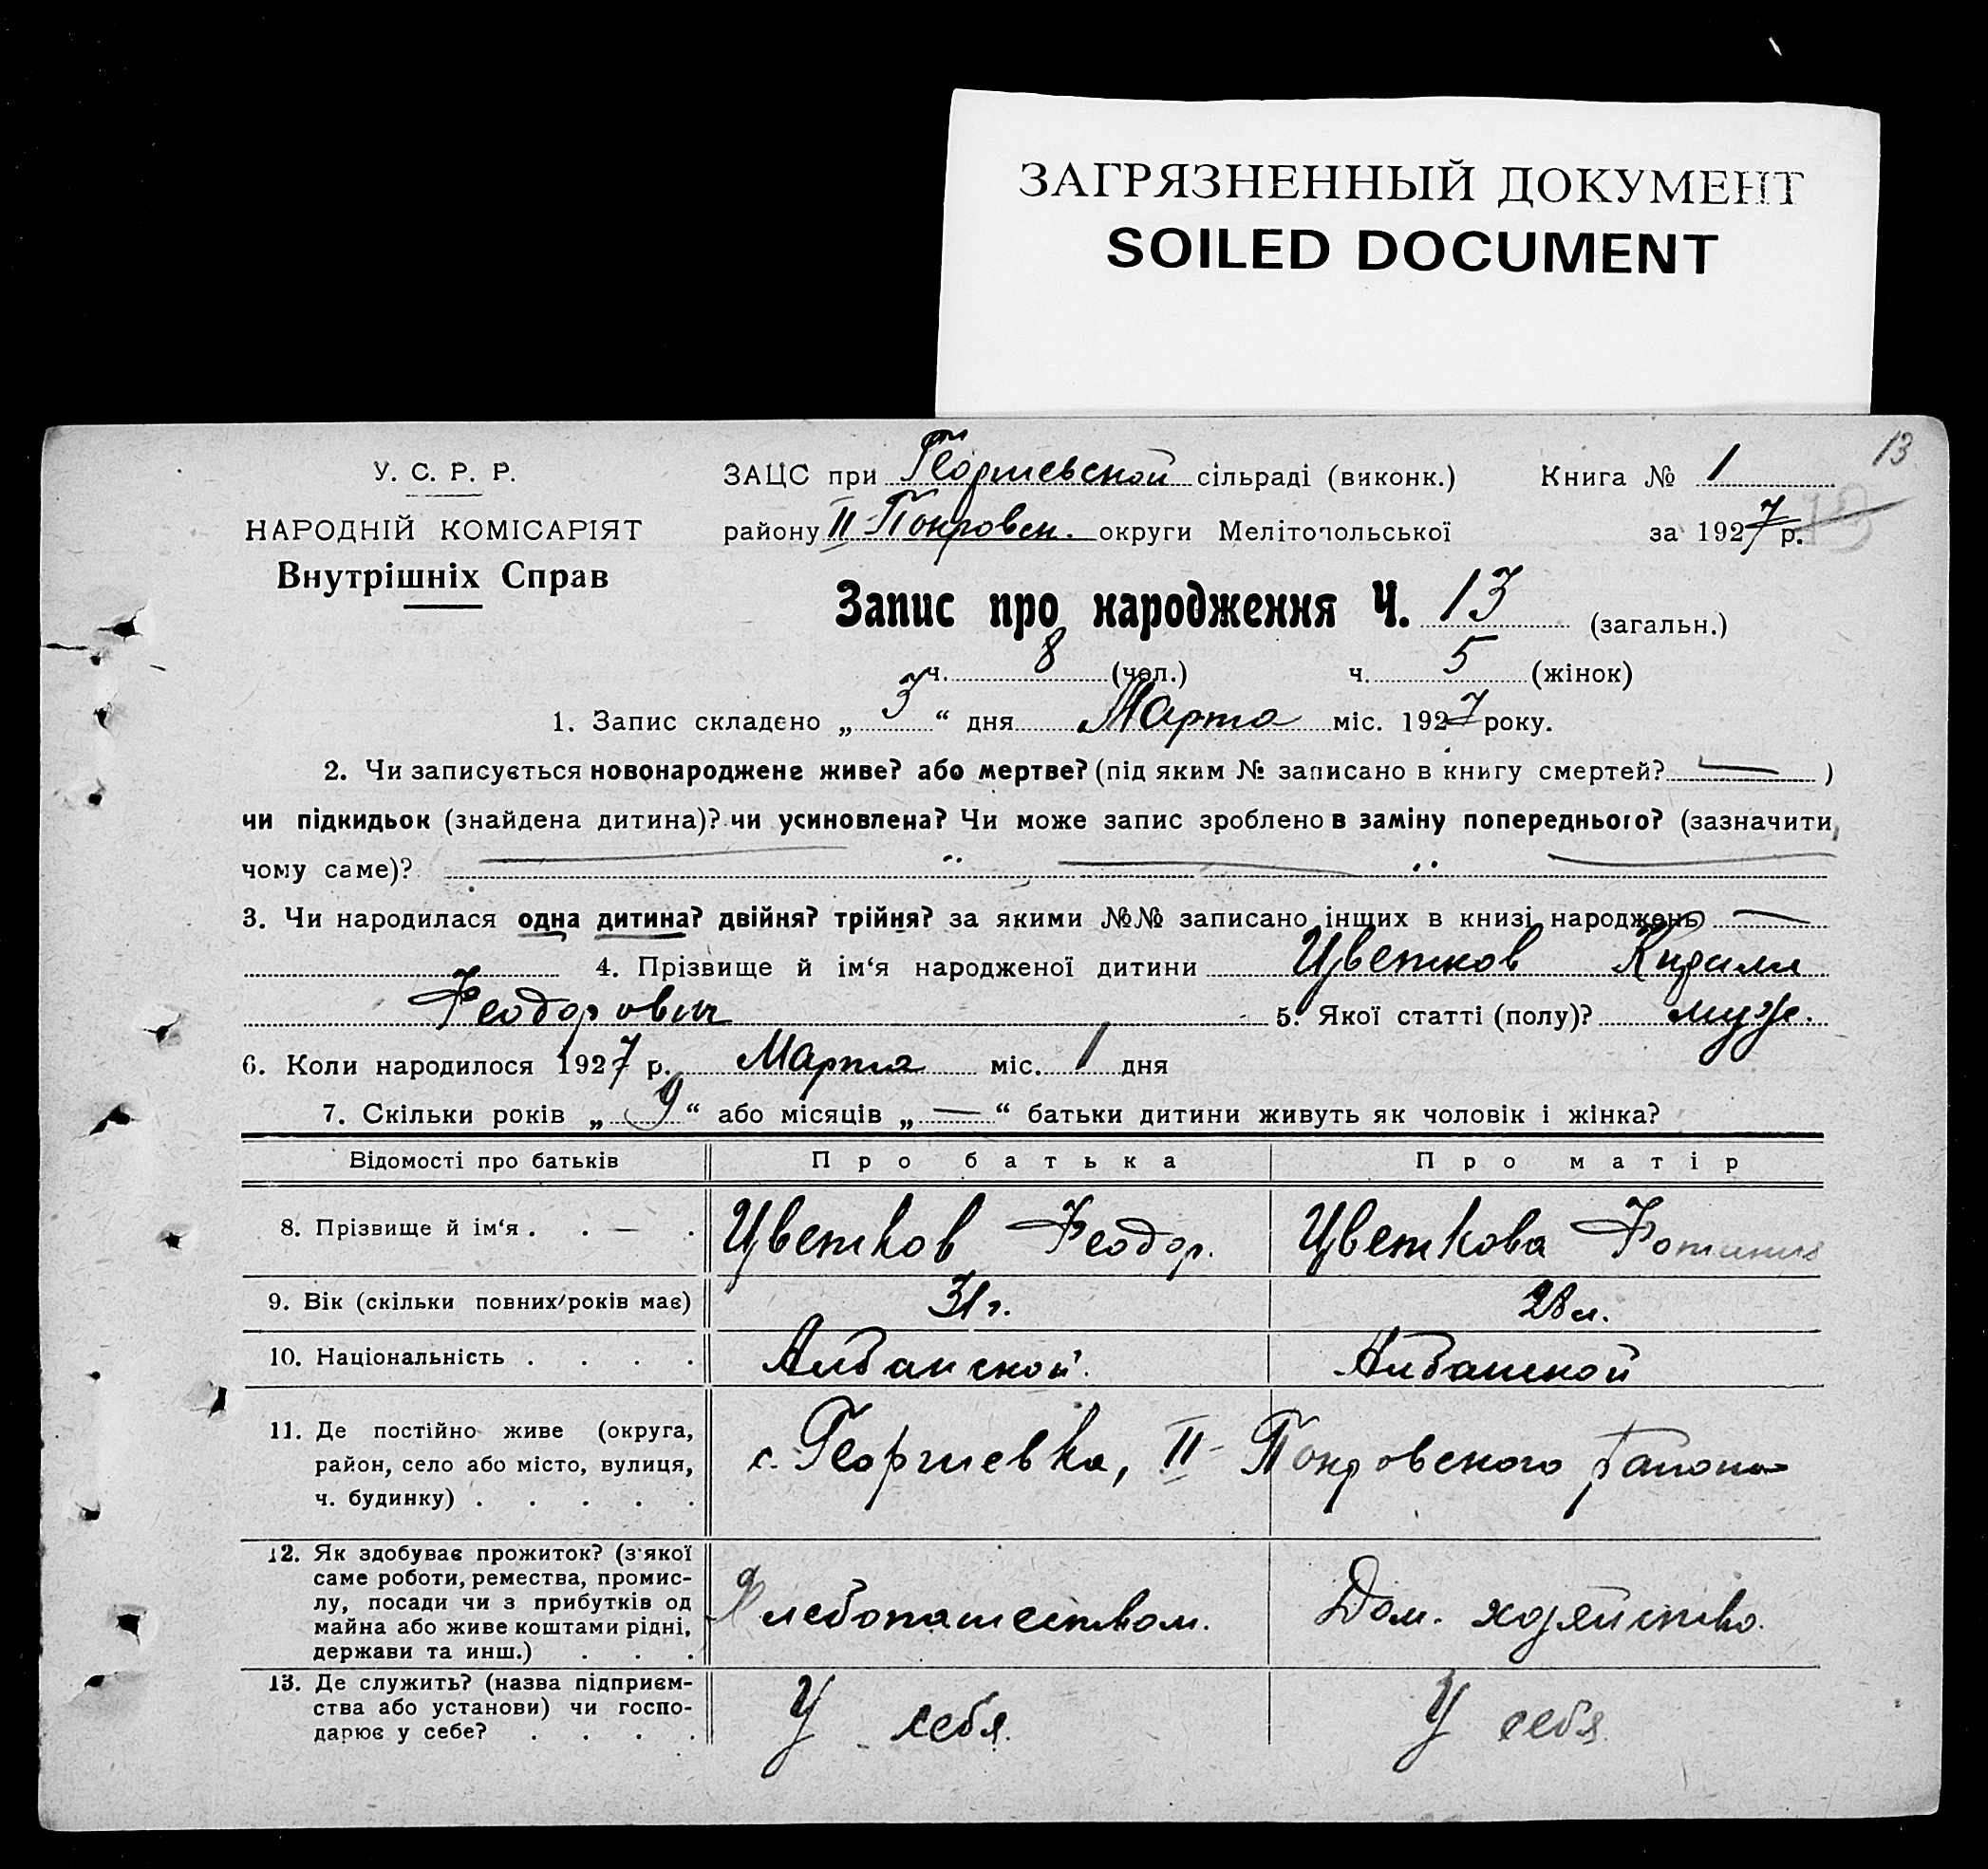 ЗАГРЯЗНЕННЫЙ ДОКУМЕНТ
SOILED DOCUMENT
13
У. С. Р. Р.
НАРОДНІЙ КОМІСАРІЯТ
Внутрішніх Справ
ЗАЦС при Георгиевской сільраді (виконк.) Книга № 1
району II-Покровск. округи Мелітопольської за 1927 р.
Запис про народження Ч. 13 (загальн.)
ч. 8 (чол.) ч. 5 (жінок)
1. Запис складено „ 3 “ дня Марта міс. 1927 року.
2. Чи записується новонароджене живе? або мертве? (під яким № записано в книгу смертей? — )
чи підкидьок (знайдена дитина)? чи усиновлена? Чи може запис зроблено в заміну попереднього? (зазначити,
чому саме)? — „ — „ —
3. Чи народилася одна дитина? двійня? трійня? за якими №№ записано інших в книзі народжень —
4. Прізвище й ім‘я народженої дитини Цветков Кирилл
Феодорович 5. Якої статті (полу)? муж.
6. Коли народилося 1927 р. Марта міс. 1 дня
7. Скільки років „ 9 “ або місяців „ — “ батьки дитини живуть як чоловік і жінка?
Відомості про батьків Про батька Про матір
8. Прізвище й ім‘я . . — . Цветков Феодор. Цветкова Фотиния
9. Вік (скільки повних років має) 31 г. 28 л.
10. Національність . . . . Албанской. Албанской
11. Де постійно живе (округа,
район, село або місто, вулиця,
ч. будинку) . . . . .
с. Георгиевка, II-Покровского района
12. Як здобуває прожиток? (з якої
саме роботи, ремества, промис-
лу, посади чи з прибутків од
майна або живе коштами рідні,
держави та инш.) . . .
Хлебопашеством. Дом. хозяйство.
13. Де служить? (назва підприєм-
ства або установи) чи госпо-
дарює у себе? . . . .
У себя. У себя.